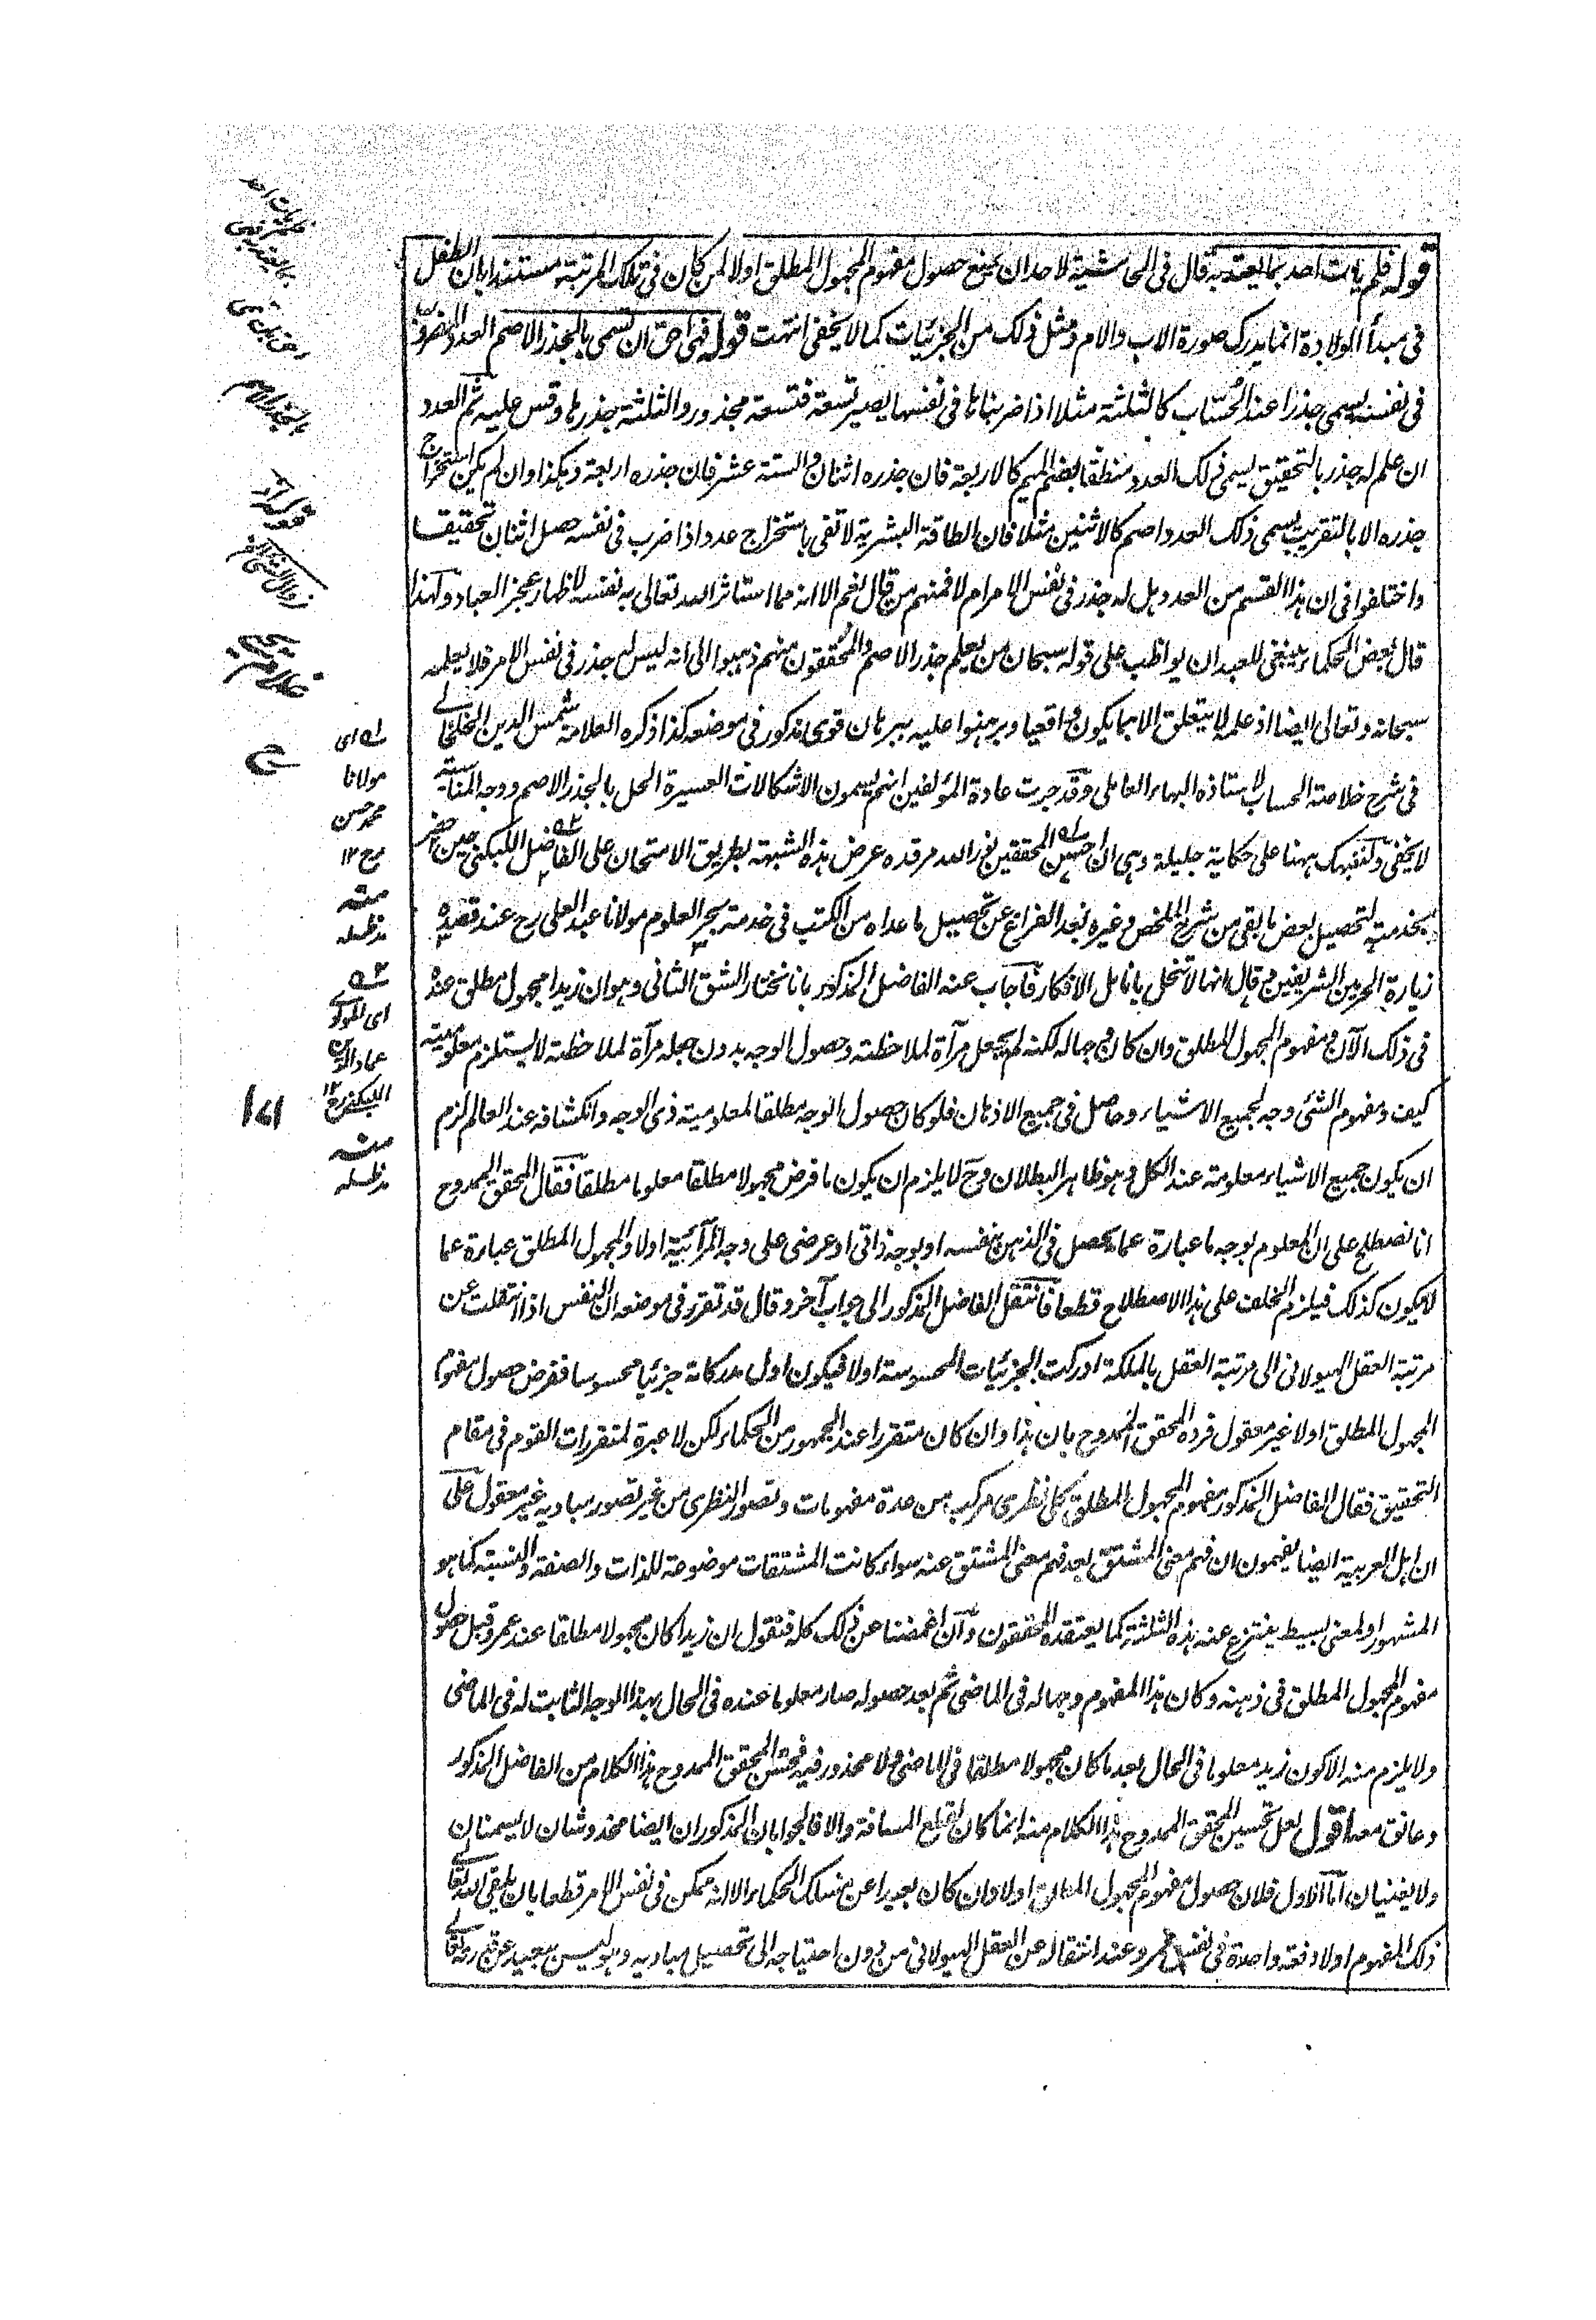 قوله فلم يات احد بما يعتد به قال فى الحاشية لاحد ان يمنع حصول مفهوم المجهول المطلق اولا لمن كان فى تلك المرتبة مستندا بان الطفل
فى مبدأ الولادة انما يدرك صورة الاب والام ومثل ذلك من الجزئيات كما لا يخفى انتهت قوله فهى احق ان تسمى بالجذر الاصم العدد المضروب
فى نفسه يسمى جذرا عند الحُسّاب كالثلثة مثلا اذا ضربناها فى نفسها يصير تسعة فتسعة مجذور والثلثة جذرها وقس عليه ثم العدد
ان علم له جذر بالتحقيق يسمى ذلك العدد منطقا بضم الميم كالاربعة فان جذره اثنان والستة عشر فان جذره اربعة وهكذا وان لم يكن استخراج
جذره الا بالتقريب يسمى ذلك العدد اصم كالاثنين مثلا فان الطاقة البشرية لا تفى باستخراج عدد اذا ضرب فى نفسه حصل اثنان تحقيقا
واختلفوا فى ان هذا القسم من العدد هل له جذر فى نفس الامر ام لا فمنهم من قال نعم الا انه مما استاثر الله تعالى به نفسه لاظهار عجز العباد ولهذا
قال بعض الحكماء ينبغى للعبد ان يواظب على قوله سبحان من يعلم جذر الاصم والمحققون منهم ذهبوا الى انه ليس له جذر فى نفس الامر فلا يعلمه
سبحانه وتعالى ايضا اذ علمه لا يتعلق الا بما يكون واقعيا وبرهنوا عليه ببرهان قوى مذكور فى موضعه كذا ذكره العلامة شمس الدين الخلخالى
فى شرح خلاصة الحساب لاستاذه البهاء العاملى وقد جرت عادة المؤلفين انهم يسمون الاشكالات العسيرة الحل بالجذر الاصم ووجه المناسبة
لا يخفى ولننبهك ههنا على حكاية جليلة وهى ان احسن المحققين نور الله مرقده عرض هذه الشبهة بطريق الامتحان على الفاضل اللبكنى حين احضر
بخدمته لتحصيل بعض ما بقى من شرح الملخص وغيره بعد الفراغ عن تحصيل ما عداه من الكتب فى خدمة بحر العلوم مولانا عبد العلى رح عند قصده
زيارة الحرمين الشريفين وقال انها لا تنحل بانامل الافكار فاجاب عنه الفاضل المذكور بانا نختار الشق الثانى وهو ان زيدا مجهول مطلق عنده
فى ذلك الآن ومفهوم المجهول المطلق وان كان وجها له لكنه لم يجعل مرآة لملاحظته وحصول الوجه بدون جعله مرآة لملاحظته لا يستلزم معلوميته
كيف ومفهوم الشئ وجه لجميع الاشياء وحاصل فى جميع الاذهان فلو كان حصول الوجه مطلقا لمعلومية ذى الوجه وانكشافه عند العالم لزم
ان يكون جميع الاشياء معلومة عند الكل وهو ظاهر البطلان وح لا يلزم ان يكون ما فرض مجهولا مطلقا معلوما مطلقا فقال المحقق الممدوح
انا نصطلح على ان المعلوم بوجه ما عبارة عما يحصل فى الذهن بنفسه او بوجه ذاتى او عرضى على وجه المرآتية اولا والمجهول المطلق عبارة عما
لا يكون كذلك فيلزم الخلف على هذا الاصطلاح قطعا فانتقل الفاضل المذكور الى جواب آخر وقال قد تقرر فى موضعه ان النفس اذا انتقلت عن
مرتبة العقل الهيولانى الى مرتبة العقل بالملكة ادركت الجزئيات المحسوسة اولا فيكون اول مدركاته جزئيا محسوسا ففرض حصول مفهوم
المجهول المطلق اولا غير معقول فرده المحقق الممدوح بان هذا وان كان متقررا عند الجمهور من الحكماء لكن لا عبرة لمتقررات القوم فى مقام
التحقيق فقال الفاضل المذكور مفهوم المجهول المطلق كلى نظرى مركب من عدة مفهومات وتصور النظرى من غير تصور مباديه غير معقول على
ان اهل العربية ايضا يفهمون ان فهم معنى المشتق بعد فهم معنى المشتق عنه سواء كانت المشتقات موضوعة للذات والصفة والنسبة كما هو
المشهور او لمعنى بسيط ينتزع عنه هذه الثلثة كما يعتقده المحققون وان اغمضنا عن ذلك كله فنقول ان زيدا كان مجهولا مطلقا عند عمرو قبل حصول
مفهوم المجهول المطلق فى ذهنه وكان هذا المفهوم وجها له فى الماضى ثم بعد حصوله صار معلوما عنده فى الحال بهذا الوجه الثابت له فى الماضى
ولا يلزم منه الا كون زيد معلوما فى الحال بعد ما كان مجهولا مطلقا فى الماضى ولا محذور فيه فحسّن المحقق الممدوح هذا الكلام من الفاضل المذكور
وعانق معه اقول لعل تحسين المحقق الممدوح هذا الكلام منه انما كان لقطع المسافة والا فالجوابان المذكوران ايضا مخدوشان لا يسمنان
ولا يغنيان اما الاول فلان حصول مفهوم المجهول المطلق اولا وان كان بعيدا عن مسلك الحكماء الا انه ممكن فى نفس الامر قطعا بان يلقى الله تعالى
ذلك المفهوم اولا دفعة واحدة فى نفس عمرو عند انتقاله عن العقل الهيولانى من دون احتياجه الى تحصيل مباديه وهو ليس ببعيد عن قدرته تعالى
فلم يات احد
بما يعتد به فهى
احق بان تسمى
بالجذر الاصم
ح
سله اى
مولانا
محمد حسن
رح ١٢
منه
مدظله
سله
اى المولوى
عماد الدين
اللبكنى رح ١٢
منه
مدظله
١٧١